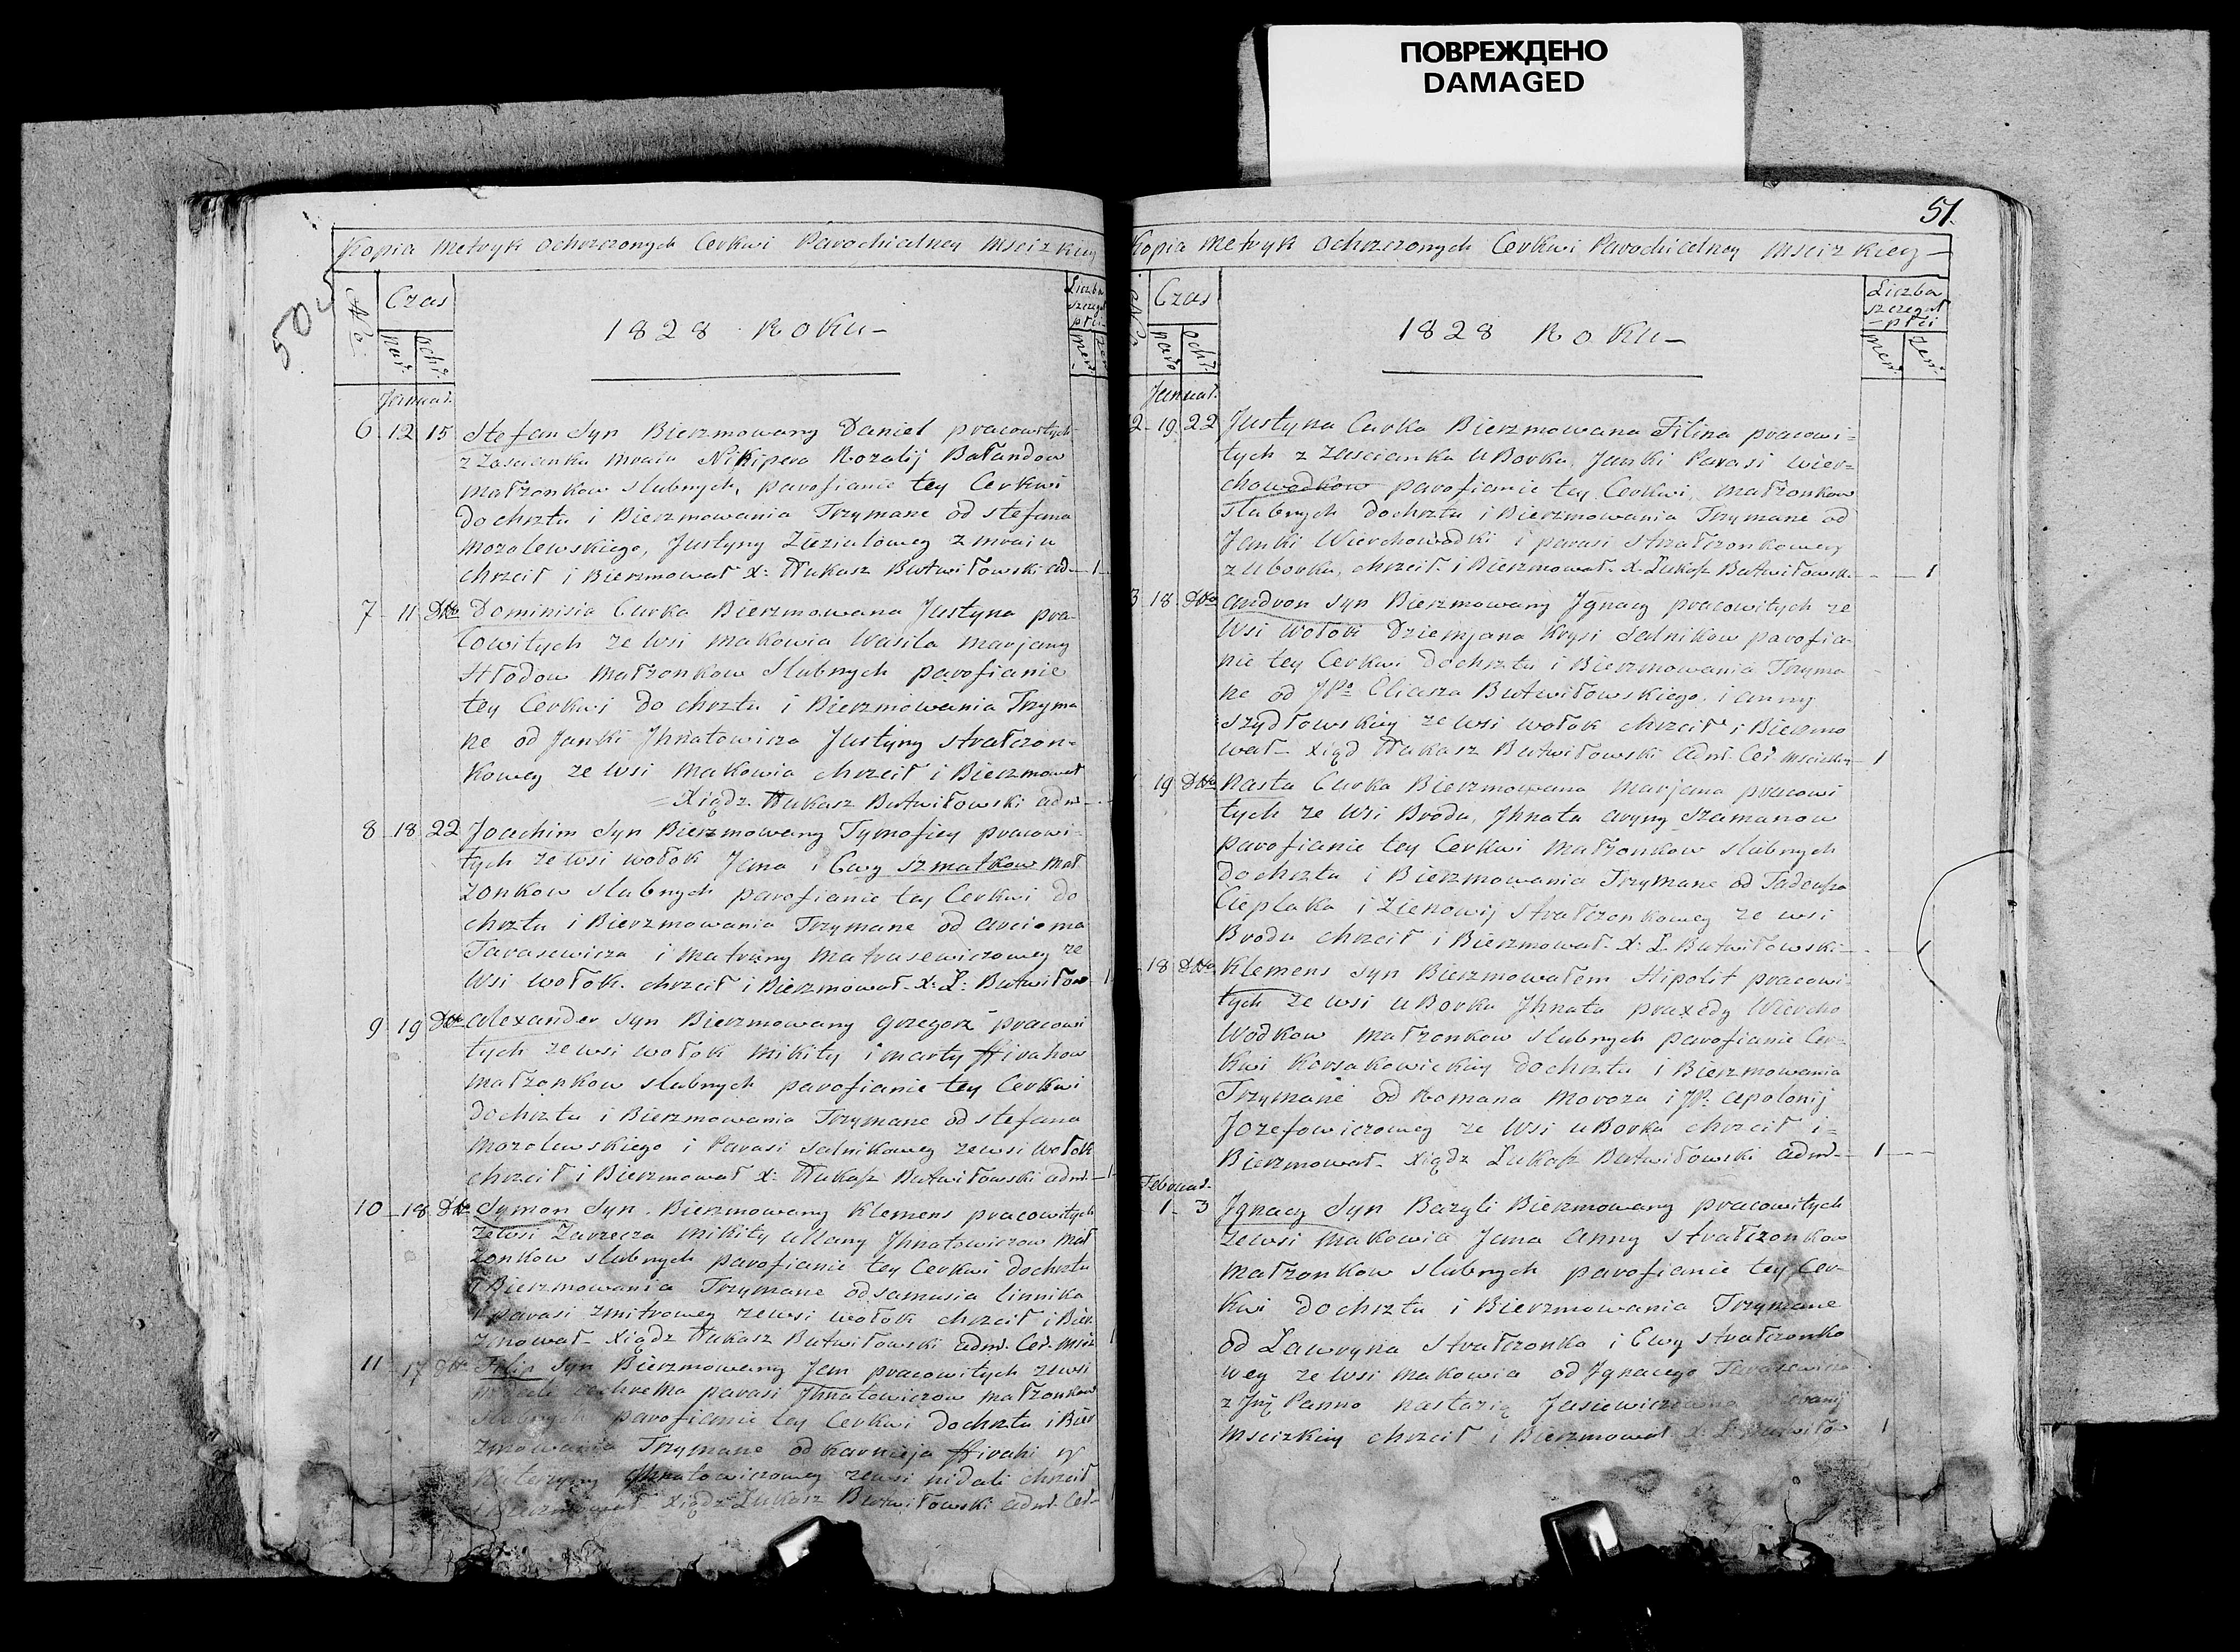 ПОВРЕЖДЕНО
DAMAGED
Kopia Metryk Ochrzczonych Cerkwi Parochialney Mscizkiey
No
Czas
Liczba
szczegół
płci
1828 Roku
Januar.
6 12 15 Stefan Syn Bierzmowany Daniel pracowitych
z Zascianku Mraiu Nikipera Rozalij Bałandow
Małżonkow slubnych, parofianie tey Cerkwi
do chrztu i Bierzmowania Trzymane od Stefana
Mozolewskiego, Justyny Ziezialowey z Mraiu
chrzcił i Bierzmował X: Łukasz Butwiłowski ad 1
7 11 Dtto Dominisia Curka Bierzmowana Justyna pra-
cowitych ze Wsi Makowia Wasila Marjany
Małżonkow Slubnych parofianie
tey Cerkwi do chrztu i Bierzmowania Trzyma
ne od Janki Jhnatowicza Justyny Strałczon-
kowey ze Wsi Makowia chrzcił i Bierzmował
Xiądz Łukasz Butwiłowski adm
8 18 22 Joachim Syn Bierzmowany Tymofiey pracowi-
tych ze Wsi Wołok Jana i Ewy Szmatkow Mał
żonkow slubnych parofianie tey Cerkwi do
chrztu i Bierzmowania Trzymane od Arcioma
Tarasewicza i Matruny Matrasewiczowey ze
Wsi Wołok. chrzcił i Bierzmował X: Ł: Butwiłow 1
9 19 Dtto Alexander Syn Bierzmowany Grzegorz pracowi
tych ze wsi Wołok Mikity i Marty
Małżonkow slubnych parofianie tey Cerkwi
do chrztu i Bierzmowania Trzymane od Stefana
Mozolewskiego i Parasi Salnikowey ze wsi Wołok
chrzcił i Bierzmował X: Łukasz Butwiłowski adm. 1
10 18 Dtto Symon Syn Bierzmowany Klemens pracowitych
ze wsi Zarzecza Mikity Ullany Jhnatowiczow Mał
żonkow slubnych parofianie tey Cerkwi do chrztu
i Bierzmowania Trzymane od Samusia Linnika
i Parasi Zmitrowey ze wsi Wołok chrzcił i Bier
zmował Xiądz Łukasz Butwiłowski adm. Cer. Msciz
11 17 Dtto Filip Syn Bierzmowany Jan pracowitych ze wsi
Nidali parasi Jhnatowiczow Małżonkow
Slubnych parofianie tey Cerkwi do chrztu i Bier
zmowania Trzymane od Karnieja
Kateryny Jhnatowiczowey ze wsi Nidali chrzcił
i Bierzmował Xiądz Łukasz Butwiłowski adm. Cer.
51.
Kopia Metryk Ochrzczonych Cerkwi Parochialney Mscizkiey
No
Czas
Liczba
szczegół
płci
1828 Roku
Januar.
2 19 22 Justyna Curka Bierzmowana Filina pracowi=
tych z Zascianka U Borka, Janki Parasi Wier=
chowodkow parofianie tey Cerkwi, Małżonkow
Slubnych do chrztu i Bierzmowania Trzymane od
Janki Wierchowodki i parasi Strałczonkowey
z Uborka, chrzcił i Bierzmował X. Łukasz Butwiłowski 1
3 18 Dtto Andron Syn Bierzmowany Jgnacy pracowitych ze
Wsi Wołok Dziemjana Krysi Salnikow parofia-
nie tey Cerkwi do chrztu i Bierzmowania Trzyma
ne od JPa Eliasza Butwiłowskiego i Anny
Szydłowskiey ze Wsi Wołok chrzcił i Bierzmo
wał Xiądz Łukasz Butwiłowski adm. Cer. 1
19 Dtto Nasta Curka Bierzmowana Marjana pracowi
tych ze Wsi Brodu, Jhnata Aryny Szamanow
parofianie tey Cerkwi Małżonkow slubnych
do chrztu i Bierzmowania Trzymane od Tadeusza
Cieplaka i Zienowij Strałczonkowey ze wsi
Brodu chrzcił i Bierzmował X: Ł Butwiłowski 1
18 Dtto Klemens Syn Bierzmowałem Hipolit pracowi-
tych ze Wsi U Borka Jhnata Praxedy Wiercho
wodkow Małżonkow slubnych parofianie Cer=
kwi Korsakowickiey do chrztu i Bierzmowania
Trzymane od Romana Moroza i JP. Apolonij
Jozefowiczowey ze Wsi U Borka chrzcił i=
Bierzmował Xiądz Łukasz Butwiłowski adm. 1
Februar.
1 3 Jgnacy Syn Bazyli Bierzmowany pracowitych
ze wsi Makowia Jana Anny Strałczonkow
Małżonkow slubnych parofianie tey Cer-
kwi do chrztu i Bierzmowania Trzymane
od Lawryna Strałczonka i Ewy Strałczonko
wey ze Wsi Makowia od Jgnacego Tarasewicza
z Panno Nastazią
Mscizkiey chrzcił i Bierzmował X: Ł Butwiłow 1